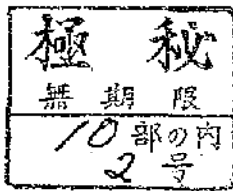 極秘
無期限
10部の内
2号